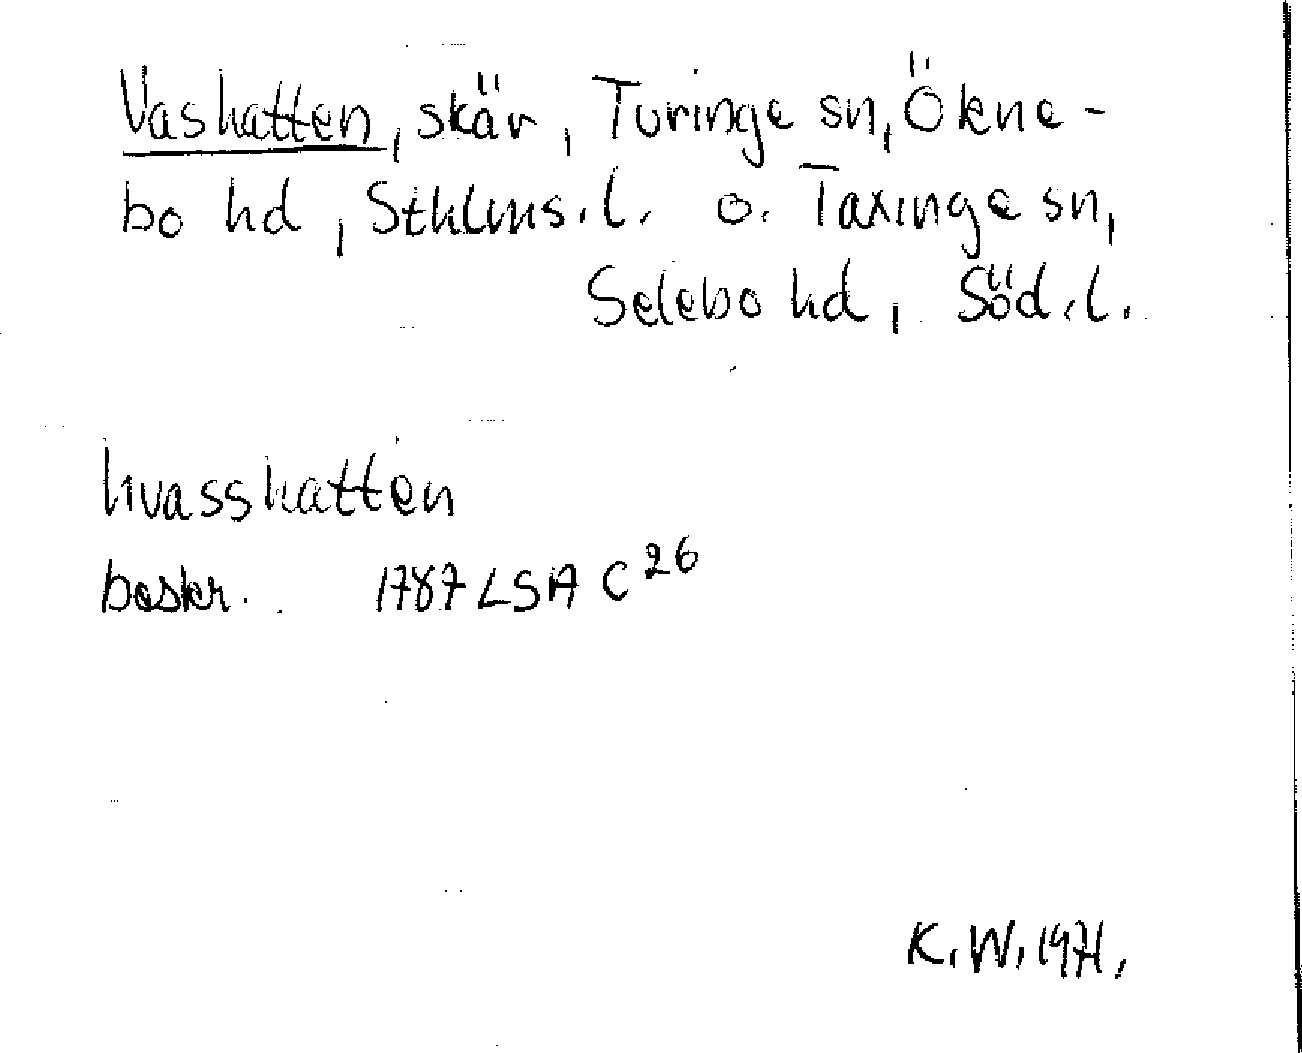 Vashatten, skär, Turinge sn, Ökne-
bo hd, Sthlms.l. o. Taxinge sn,
Selebo hd, Söd.l.
hvasshatten
beskr. 1787 LSA C 26
K.W. 1971.